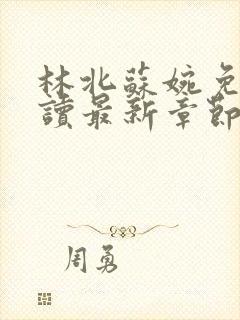 林北蘇婉免
讀最新章節
周勇